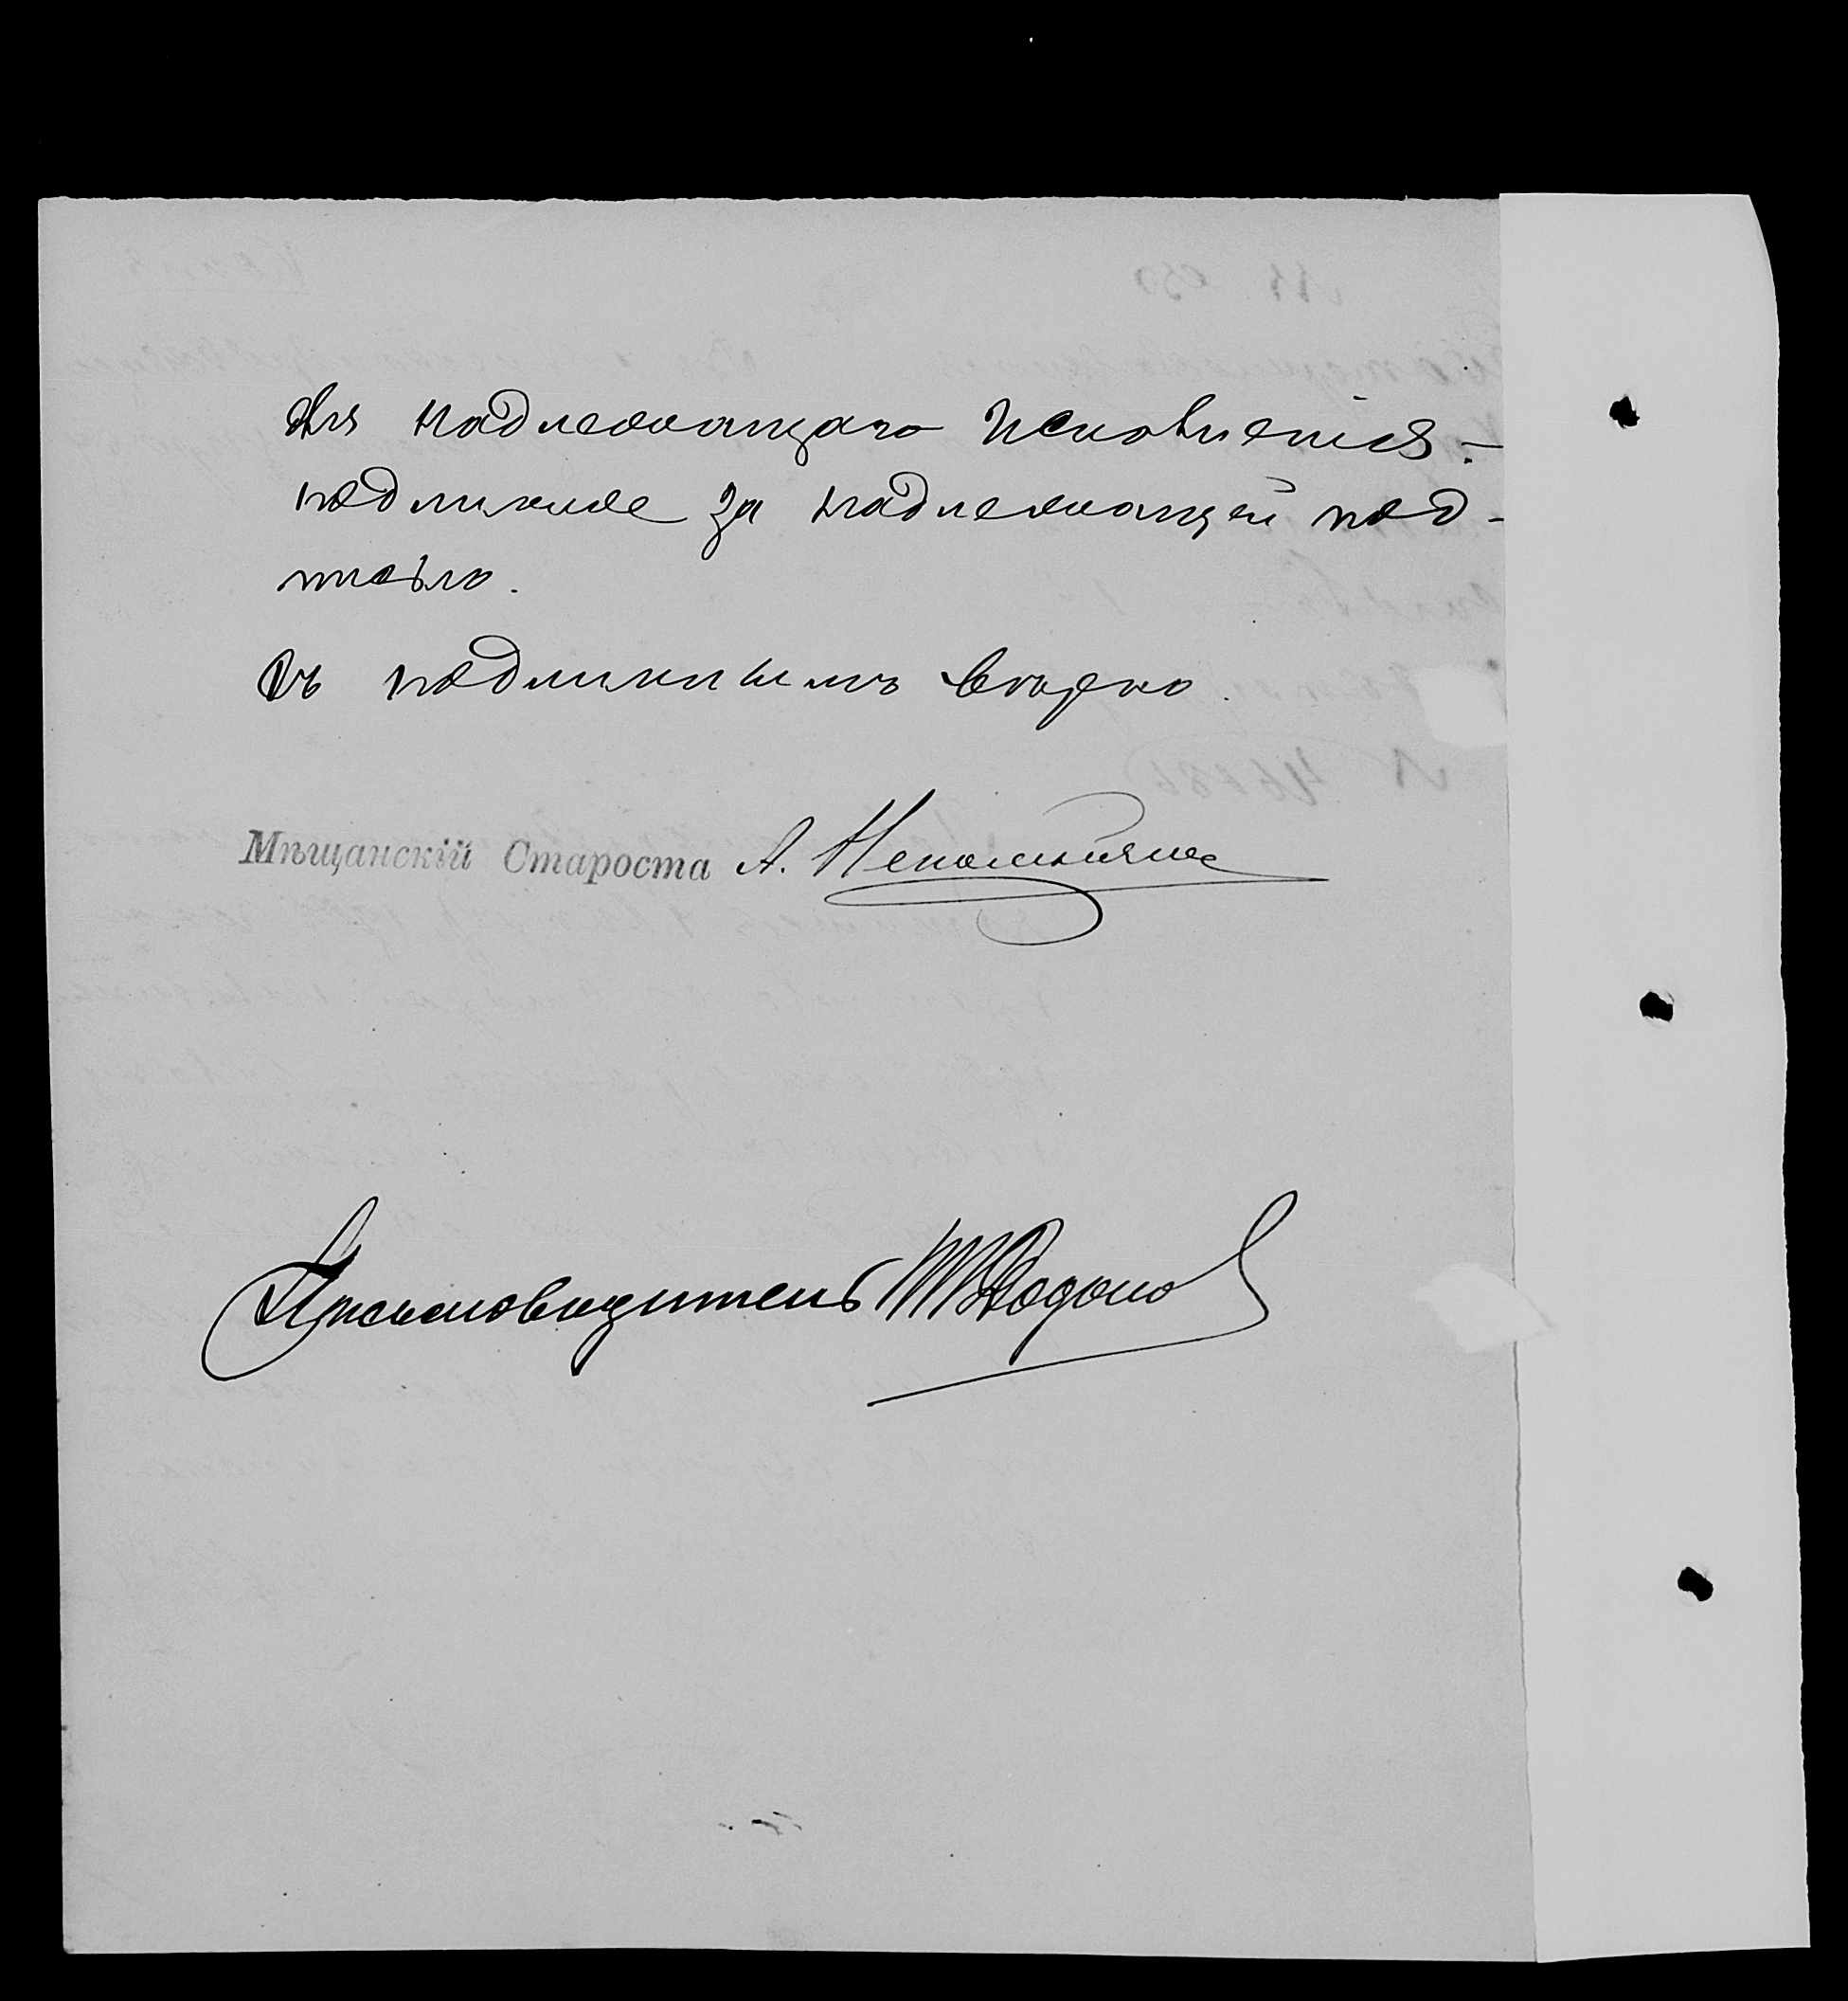 для надлежащаго исполненія.-
подлинное за надлежащей под-
писью.
Съ подлиннымъ вѣрно.
Мѣщанскій Староста А. Непомнящ
Письмоводитель